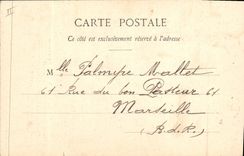 CARTE POSTALE
Ce côté est exclusivement réservé à l'adresse
Mlle Palmyre Mallet
61 Rue du bon Pasteur 61
Marseille
(B.d.R.)